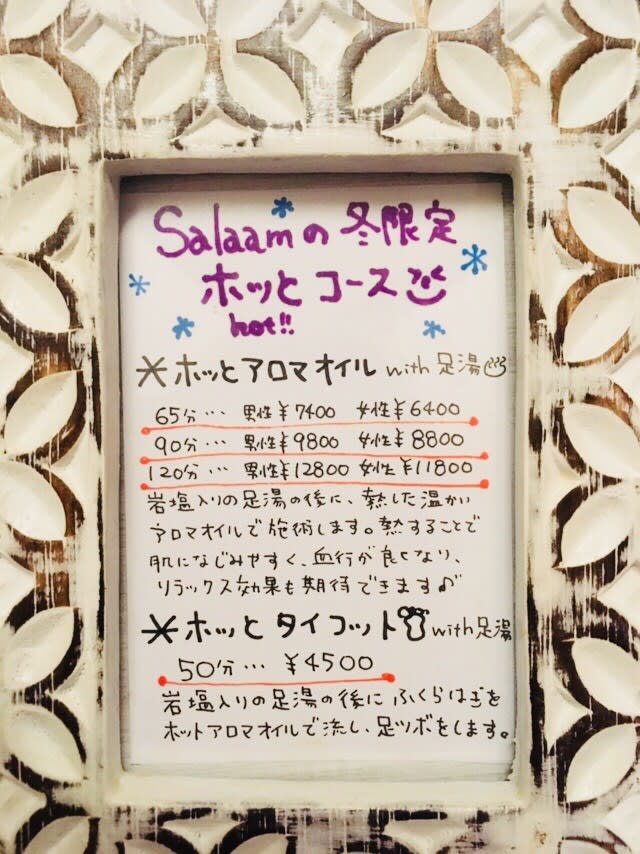 Salaamの冬限定
ホッとコース
hot!!
ホッとアロマオイル with 足湯
65分… 男性¥7400 女性¥6400
90分… 男性¥9800 女性¥8800
120分… 男性¥12800 女性¥11800
岩塩入りの足湯の後に、熱した温かい
アロマオイルで施術します。熱することで
肌になじみやすく、血行が良くなり、
リラックス効果も期待できます♪
ホッとタイフット with足湯
50分… ¥4500
岩塩入りの足湯の後にふくらはぎを
ホットアロマオイルで流し、足ツボをします。